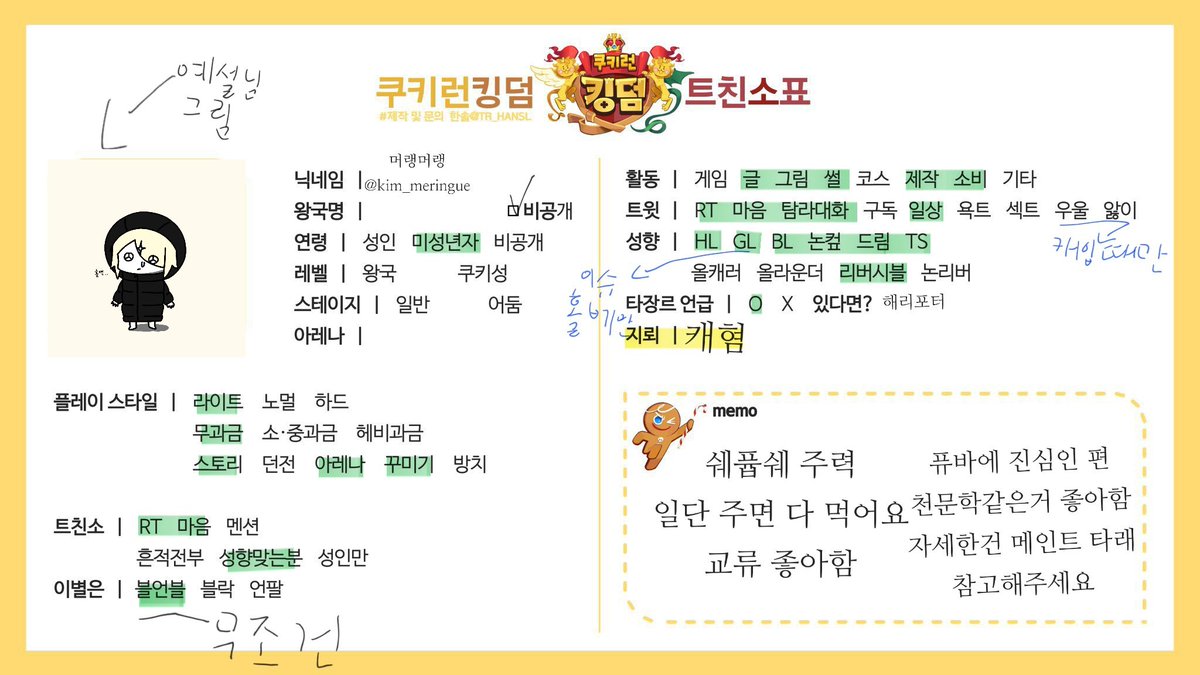 예설님
그림
쿠키런킹덤 쿠키런 킹덤 트친소표
#제작 및 문의 한솔@TR_HANSL
닉네임 | 머랭머랭
@kim_meringue
왕국명 | 비공개
연령 | 성인 미성년자 비공개
레벨 | 왕국 쿠키성
스테이지 | 일반 어둠
아레나 |
플레이 스타일 | 라이트 노멀 하드
무과금 소·중과금 헤비과금
스토리 던전 아레나 꾸미기 방치
트친소 | RT 마음 멘션
흔적전부 성향맞는분 성인만
이별은 | 블언블 블락 언팔
무조건
활동 | 게임 글 그림 썰 코스 제작 소비 기타
트윗 | RT 마음 탐라대화 구독 일상 욕트 섹트 우울 앓이
캐입 때만
성향 | HL GL BL 논컾 드림 TS
올캐러 올라운더 리버시블 논리버
타장르 언급 | O X 있다면? 해리포터
지뢰 | 캐혐
memo
쉐퓹쉐 주력
일단 주면 다 먹어요
교류 좋아함
퓨바에 진심인 편
천문학같은거 좋아함
자세한건 메인트 타래
참고해주세요